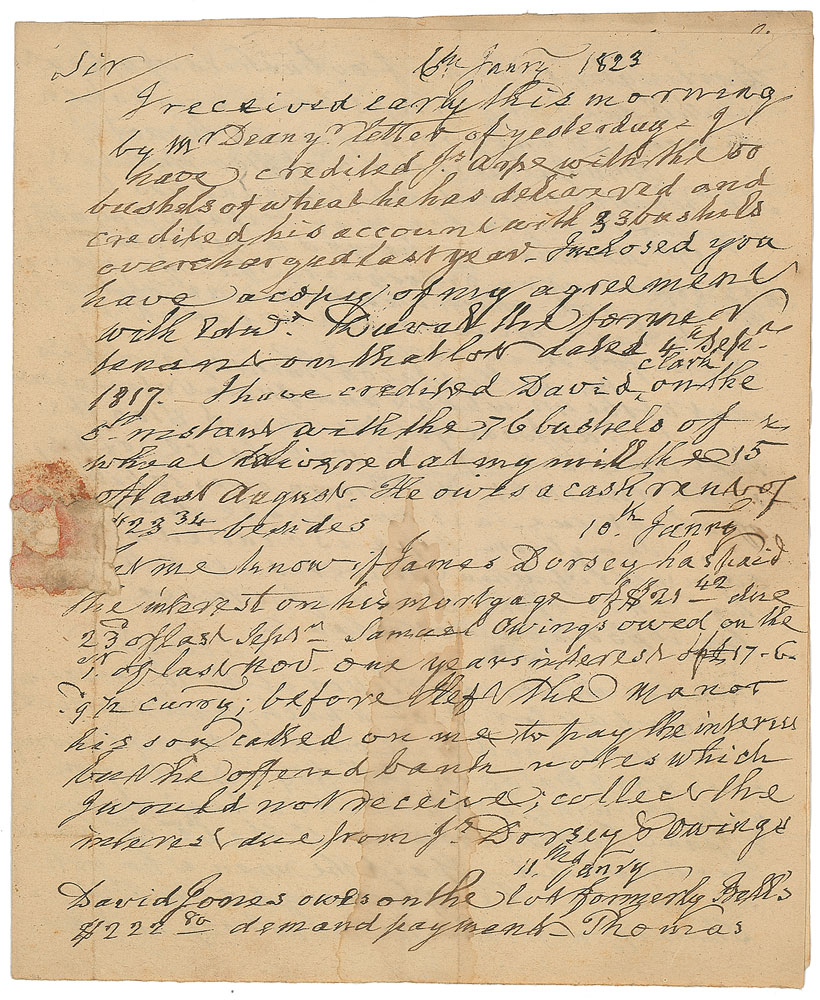 Sir 6th Janry 1823
I received early this morning
by Mr Dean yr letter of yesterday I
have credited Js with the 50
bushels of wheat he has delivered and
credited his account with 33 bushels
overcharged last year. Inclosed you
have a copy of my agreement
with Edwd. Duval the former
tenant on that lot dated 4th Sepr.
1817. I have credited David Clark on the
5th instant with the 76 bushels of
wheat delivered at my mill the 15
of last August. He owes a cash rent of
$23 34 besides 10th Janry
let me know if James Dorsey has paid
the interest on his mortgage of $21 42 due
23d of last Sepr Samuel Owings owed on the
1st of last Nov. one years interest of £17-6-
9 ½ curry; before I left the Manor
his son called on me to pay the interest
but he offered bank notes which
I would not receive; collect the
interest due from Js Dorsey & Owings
11 Janry
David Jones owes on the lot formerly Bells
$222 80 demand payment - Thomas